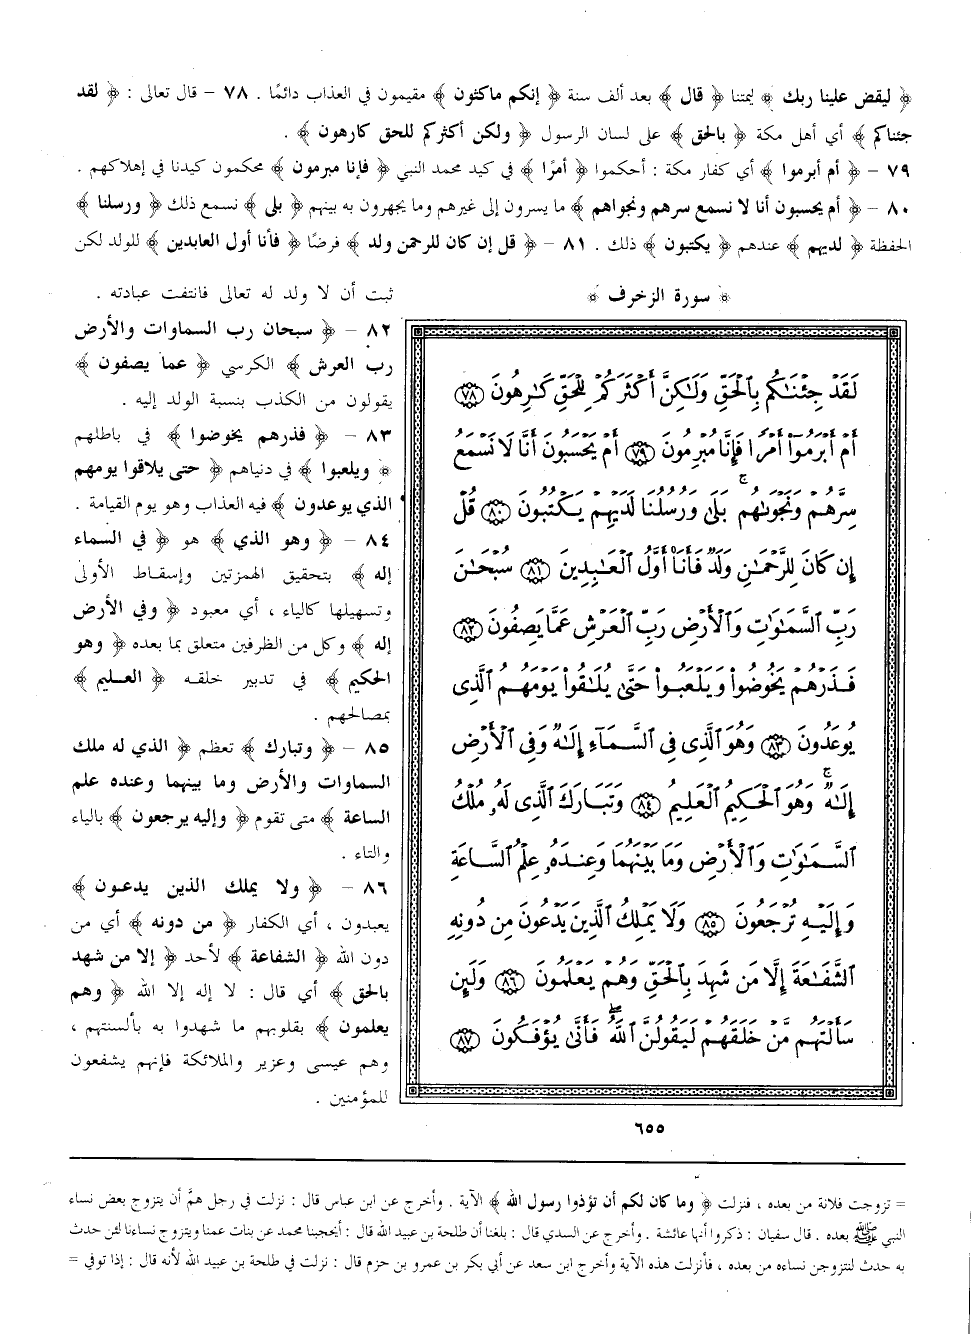 ﴿ ليقض علينا ربك ﴾ ليمتنا ﴿ قال ﴾ بعد ألف سنة ﴿ إنكم ماكثون ﴾ مقيمون في العذاب دائمًا . ٧٨ – قال تعالى : ﴿ لقد
جئناكم ﴾ أي أهل مكة ﴿ بالحق ﴾ على لسان الرسول ﴿ ولكن أكثركم للحق كارهون ﴾ .
٧٩ – ﴿ أم أبرموا ﴾ أي كفار مكة : أحكموا ﴿ أمرًا ﴾ في كيد محمد النبي ﴿ فإنا مبرمون ﴾ محكمون كيدنا في إهلاكهم .
٨٠ – ﴿ أم يحسبون أنا لا نسمع سرهم ونجواهم ﴾ ما يسرون إلى غيرهم وما يجهرون به بينهم ﴿ بلى ﴾ نسمع ذلك ﴿ ورسلنا ﴾
الحفظة ﴿ لديهم ﴾ عندهم ﴿ يكتبون ﴾ ذلك . ٨١ – ﴿ قل إن كان للرحمن ولد ﴾ فرضًا ﴿ فأنا أول العابدين ﴾ للولد لكن
ثبت أن لا ولد له تعالى فانتفت عبادته .
٨٢ – ﴿ سبحان رب السماوات والأرض
رب العرش ﴾ الكرسي ﴿ عما يصفون ﴾
يقولون من الكذب بنسبة الولد إليه .
٨٣ – ﴿ فذرهم يخوضوا ﴾ في باطلهم
﴿ ويلعبوا ﴾ في دنياهم ﴿ حتى يلاقوا يومهم
الذي يوعدون ﴾ فيه العذاب وهو يوم القيامة .
٨٤ – ﴿ وهو الذي ﴾ هو ﴿ في السماء
إله ﴾ بتحقيق الهمزتين وإسقاط الأولى
وتسهيلها كالياء ، أي معبود ﴿ وفي الأرض
إله ﴾ وكل من الظرفين متعلق بما بعده ﴿ وهو
الحكيم ﴾ في تدبير خلقه ﴿ العليم ﴾
بمصالحهم .
٨٥ – ﴿ وتبارك ﴾ تعظم ﴿ الذي له ملك
السماوات والأرض وما بينهما وعنده علم
الساعة ﴾ متى تقوم ﴿ وإليه يرجعون ﴾ بالياء
والتاء .
٨٦ – ﴿ ولا يملك الذين يدعون ﴾
يعبدون ، أي الكفار ﴿ من دونه ﴾ أي من
دون الله ﴿ الشفاعة ﴾ لأحد ﴿ إلا من شهد
بالحق ﴾ أي قال : لا إله إلا الله ﴿ وهم
يعلمون ﴾ بقلوبهم ما شهدوا به بألسنتهم ،
وهم عيسى وعزير والملائكة فإنهم يشفعون
للمؤمنين .
﴿ سورة الزخرف ﴾
لَقَدْ جِئْنَٰكُم بِٱلْحَقِّ وَلَٰكِنَّ أَكْثَرَكُمْ لِلْحَقِّ كَٰرِهُونَ ٧٨
أَمْ أَبْرَمُوٓا۟ أَمْرًا فَإِنَّا مُبْرِمُونَ ٧٩ أَمْ يَحْسَبُونَ أَنَّا لَا نَسْمَعُ
سِرَّهُمْ وَنَجْوَىٰهُم ۚ بَلَىٰ وَرُسُلُنَا لَدَيْهِمْ يَكْتُبُونَ ٨٠ قُلْ
إِن كَانَ لِلرَّحْمَٰنِ وَلَدٌ فَأَنَا۠ أَوَّلُ ٱلْعَٰبِدِينَ ٨١ سُبْحَٰنَ
رَبِّ ٱلسَّمَٰوَٰتِ وَٱلْأَرْضِ رَبِّ ٱلْعَرْشِ عَمَّا يَصِفُونَ ٨٢
فَذَرْهُمْ يَخُوضُوا۟ وَيَلْعَبُوا۟ حَتَّىٰ يُلَٰقُوا۟ يَوْمَهُمُ ٱلَّذِى
يُوعَدُونَ ٨٣ وَهُوَ ٱلَّذِى فِى ٱلسَّمَآءِ إِلَٰهٌ وَفِى ٱلْأَرْضِ
إِلَٰهٌ ۚ وَهُوَ ٱلْحَكِيمُ ٱلْعَلِيمُ ٨٤ وَتَبَارَكَ ٱلَّذِى لَهُۥ مُلْكُ
ٱلسَّمَٰوَٰتِ وَٱلْأَرْضِ وَمَا بَيْنَهُمَا وَعِندَهُۥ عِلْمُ ٱلسَّاعَةِ
وَإِلَيْهِ تُرْجَعُونَ ٨٥ وَلَا يَمْلِكُ ٱلَّذِينَ يَدْعُونَ مِن دُونِهِ
ٱلشَّفَٰعَةَ إِلَّا مَن شَهِدَ بِٱلْحَقِّ وَهُمْ يَعْلَمُونَ ٨٦ وَلَئِن
سَأَلْتَهُم مَّنْ خَلَقَهُمْ لَيَقُولُنَّ ٱللَّهُ ۖ فَأَنَّىٰ يُؤْفَكُونَ ٨٧
٦٥٥
= تزوجت فلانة من بعده ، فنزلت ﴿ وما كان لكم أن تؤذوا رسول الله ﴾ الآية . وأخرج عن ابن عباس قال : نزلت في رجل همَّ أن يتزوج بعض نساء
النبي ﷺ بعده . قال سفيان : ذكروا أنها عائشة . وأخرج عن السدي قال : بلغنا أن طلحة بن عبيد الله قال : أيحجبنا محمد عن بنات عمنا ويتزوج نساءنا لئن حدث
به حدث لنتزوجن نساءه من بعده ، فأنزلت هذه الآية وأخرج ابن سعد عن أبي بكر بن عمرو بن حزم قال : نزلت في طلحة بن عبيد الله لأنه قال : إذا توفي =